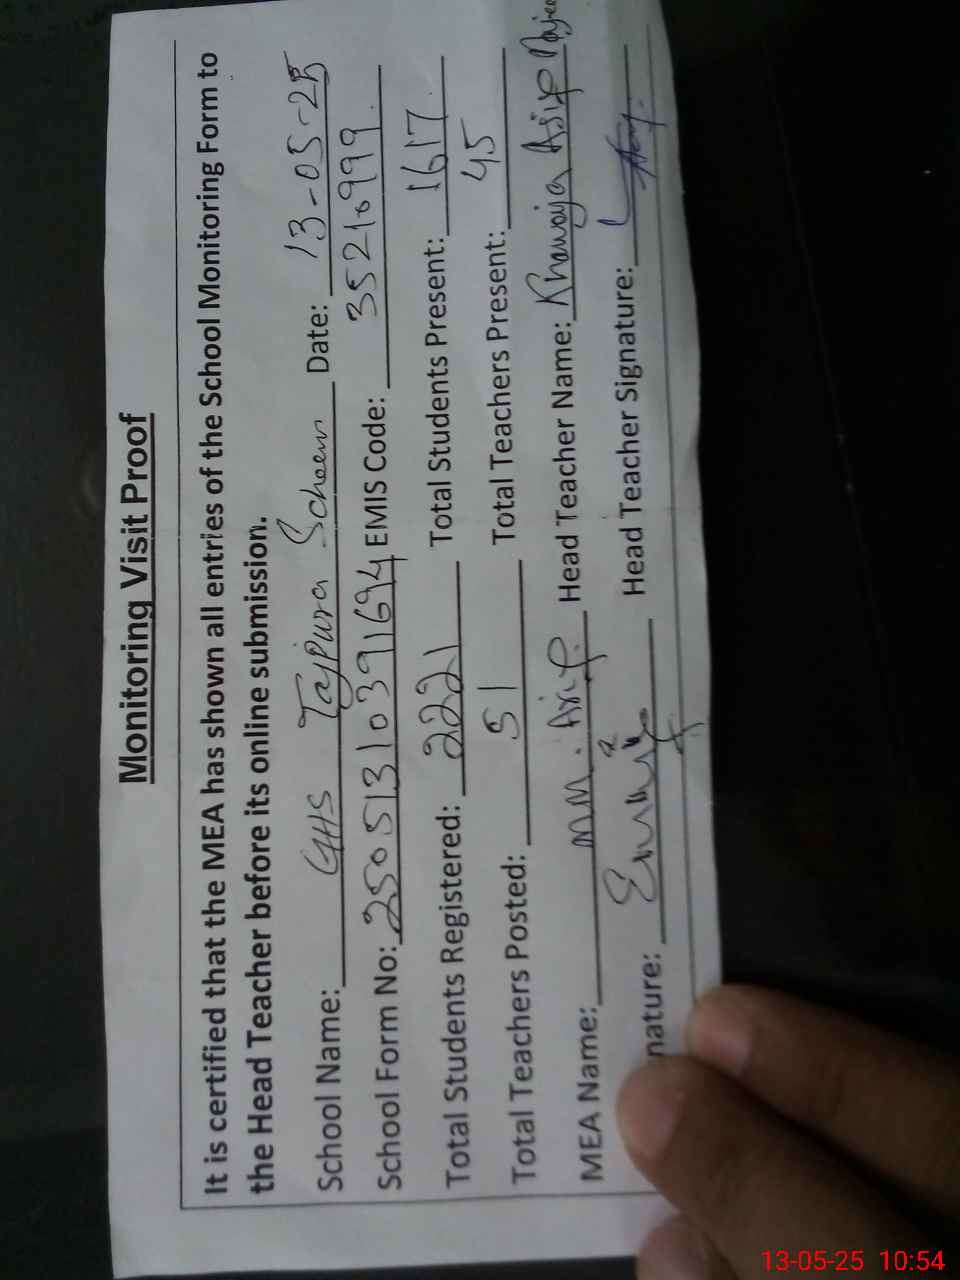 Monitoring Visit Proof
It is certified that the MEA has shown all entries of the School Monitoring Form to
the Head Teacher before its online submission.
School Name: GHS Tajpura Scheem Date: 13-05-25
School Form No: 25051310391694 EMIS Code: 35210999
Total Students Registered: 2221 Total Students Present: 1617
Total Teachers Posted: 51 Total Teachers Present: 45
MEA Name: M. Asif Head Teacher Name: Khawaja Asif
nature: Head Teacher Signature:
13-05-25 10:54